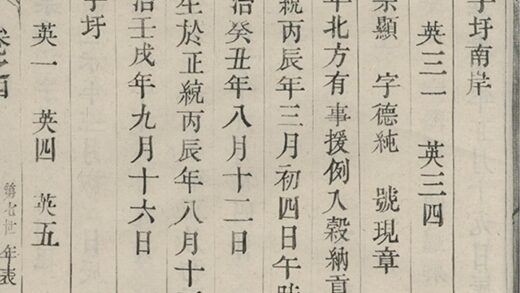 子圩南岸
英三一 英三四
顯 字德純 號現章
年北方有事援例入穀納貢
統丙辰年三月初四日午時
治癸丑年八月十二日
生於正統丙辰年八月十
治壬戌年九月十六日
子圩
英一 英四 英五
第七世 年表